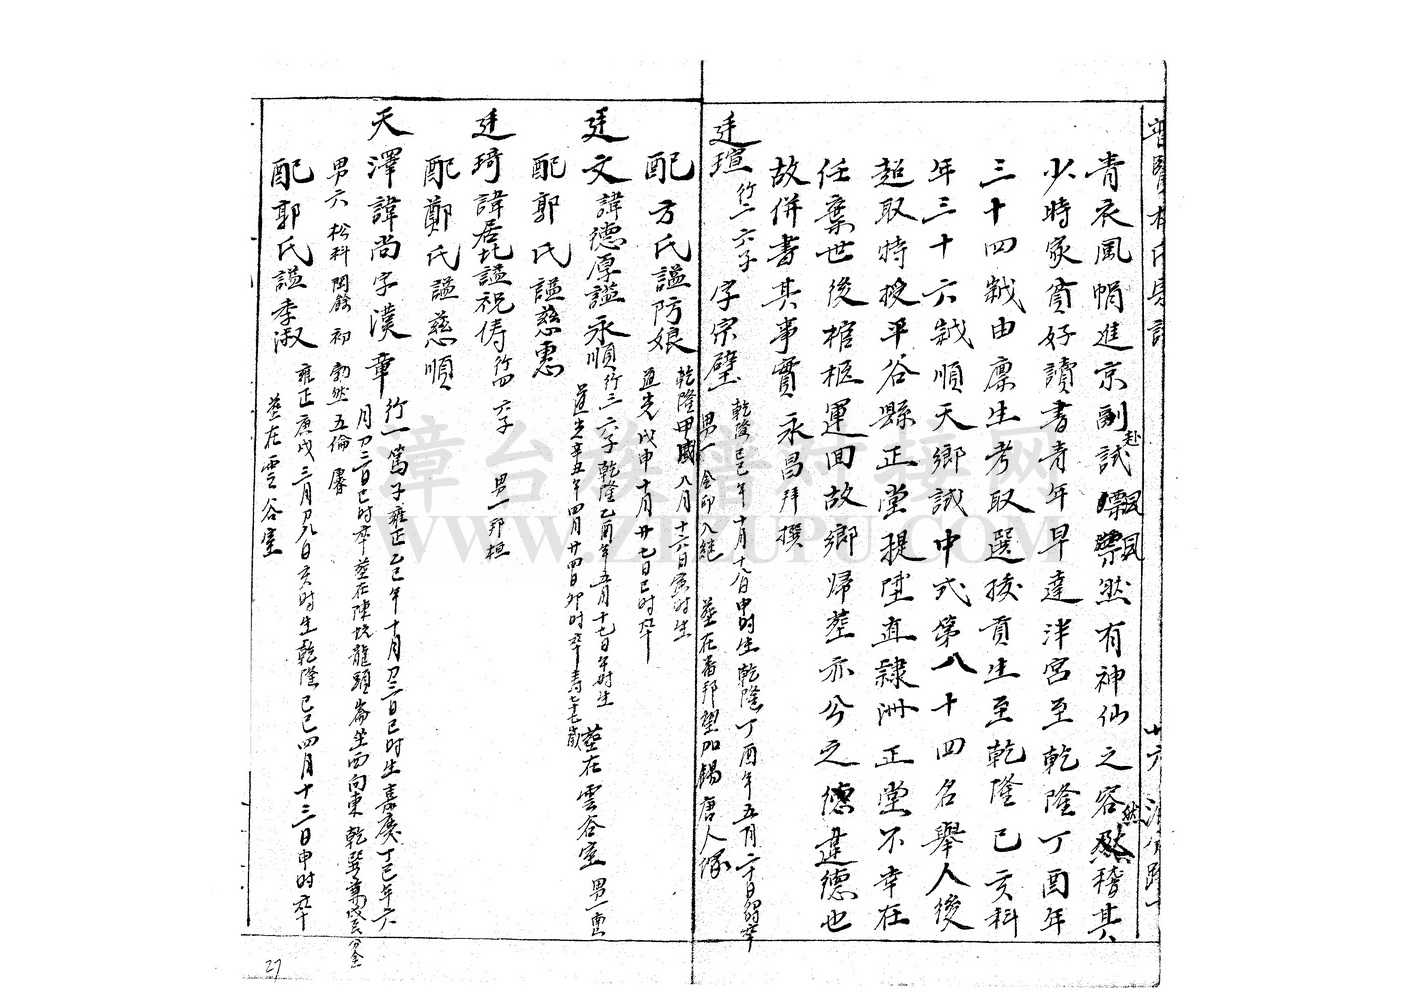 青衣風帽進京副赴試飄飄然有神仙之容然稽其
少時家貧好讀書青年早達泮宮至乾隆丁酉年
三十四嵗由廩生考取選拔貢生至乾隆己亥科
年三十六嵗順天鄉試中式第八十四名舉人後
超取特授平谷縣正堂提陞直隸州正堂不幸在
任棄世後棺柩運回故鄉歸塟亦公之德建德也
故併書其事實 永昌拜撰
廷瑄 行二 六子 字宗璧 乾隆己巳年十月十八日申時生乾隆丁酉年五月二十日 時卒
男一 金印入継 塟在番邦望加錫唐人塚
配方氏謚防娘 乾隆甲戌八月十六日寅时生
道光戊申十月廿七日巳时卒
廷文 諱德厚謚永順 行三 六子 乾隆乙酉年五月十七日午时生 塟在雲谷室 男一
道光辛丑年四月廿四日卯时卒 壽七十七歲
配郭氏謚慈惠
廷琦諱居 謚祝儔 行四 六子 男一 邦桓
配鄭氏謚慈順
天澤諱尚字漢章 行一 篤子 雍正乙巳年十月初三日巳时生嘉慶丁巳年六
月初三日巳时卒塟在陳坑龍頭崙坐西向東乾巽
男六 松 科 初 勃然 五倫
配郭氏謚孝淑 雍正庚戌三月初九日亥时生乾隆己巳四月十三日申时卒
塟在雲谷室
27
章台族譜对接网
WWW.ZTZUPU.COM